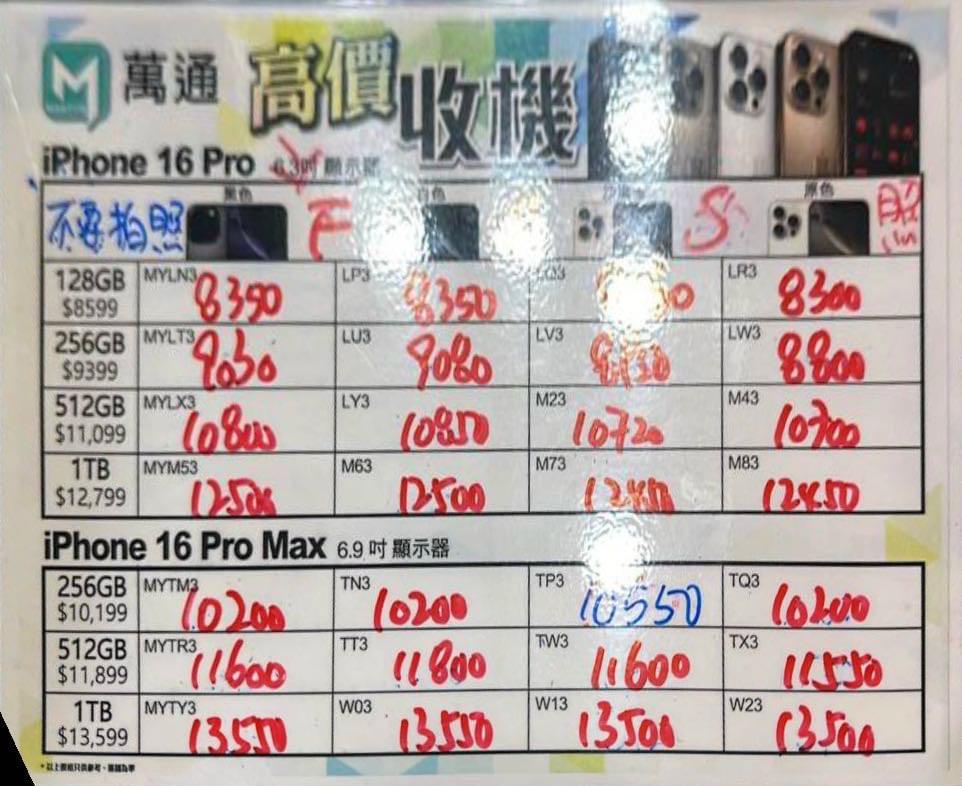 M 萬通 高價收機
iPhone 16 Pro 6.3吋 顯示器
黑色 白色 原色
不要拍照
128GB MYLN3 8350 LP3 8350 LR3 8300
$8599
256GB MYLT3 9030 LU3 9080 LV3 LW3 8800
$9399
512GB MYLX3 10800 LY3 10850 M23 10720 M43 10700
$11,099
1TB MYM53 12500 M63 12500 M73 12450 M83 12450
$12,799
iPhone 16 Pro Max 6.9 吋 顯示器
256GB MYTM3 10200 TN3 10200 TP3 10550 TQ3 10200
$10,199
512GB MYTR3 11600 TT3 11800 TW3 11600 TX3 11550
$11,899
1TB MYTY3 13550 W03 13550 W13 13500 W23 13500
$13,599